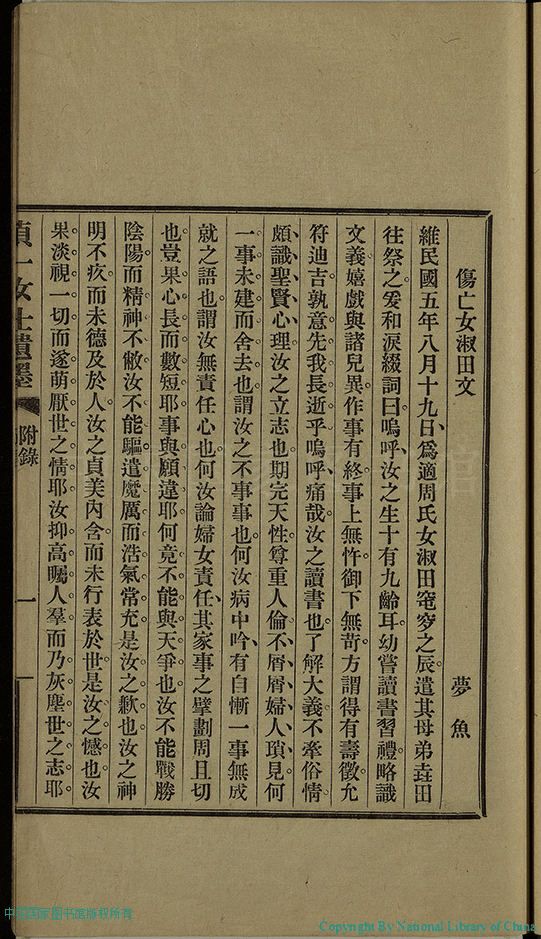 傷亡女淑田文
夢魚
維民國五年八月十九日、爲適周氏女淑田窀穸之辰。遣其母弟壵田
往祭之。爰和淚綴詞曰。嗚呼、汝之生十有九齡耳。幼嘗讀書習禮。略識
文義。嬉戲與諸兒異。作事有終。事上無忤。御下無苛。方謂得有壽徵。允
符迪吉。孰意先我長逝乎。嗚呼、痛哉。汝之讀書也。了解大義。不牽俗情。
頗識聖賢心理。汝之立志也。期完天性。尊重人倫。不屑屑婦人瑣見。何
一事未建而舍去也。謂汝之不事事也。何汝病中吟、有自慚一事無成
就之語也。謂汝無責任心也。何汝論婦女責任、其家事之擘劃周且切
也。豈果心長而數短耶。事與願違耶。何竟不能與天爭也。汝不能戰勝
陰陽。而精神不敝。汝不能驅遣魔厲。而浩氣常充。是汝之歉也。汝之神
明不疚。而未德及於人。汝之貞美內含。而未行表於世。是汝之憾也。汝
果淡視一切。而遂萌厭世之情耶。汝抑高矚人羣。而乃灰塵世之志耶。
貞一女士遺墨
附錄
一
中国国家图书馆版权所有
Copyright By National Library of China